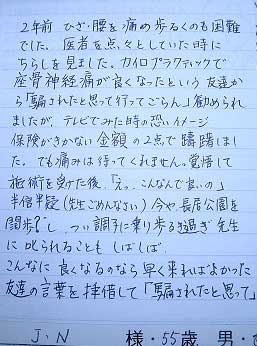 2年前 ひざ・腰を痛め歩るくのも困難
でした。医者を点々としていた時に
ちらしを見ました。カイロプラクティックで
座骨神経痛が良くなったという友達か
ら「騙されたと思って行ってごらん」勧められ
ましたが、テレビでみた時の恐いイメージ
保険がきかない金額の2点で躊躇しまし
た。でも痛みは待ってくれません。覚悟して
施術を受けた後、「えっ。こんなんで良いの」
半信半疑(先生ごめんなさい)今や、長居公園を
闊歩し、つい調子に乗り歩る過ぎ先生
に叱られることもしばしば。
こんなに良くなるのなら早く来ればよかった
友達の言葉を拝借して「騙されたと思って」
J・N 様・55歳 男・